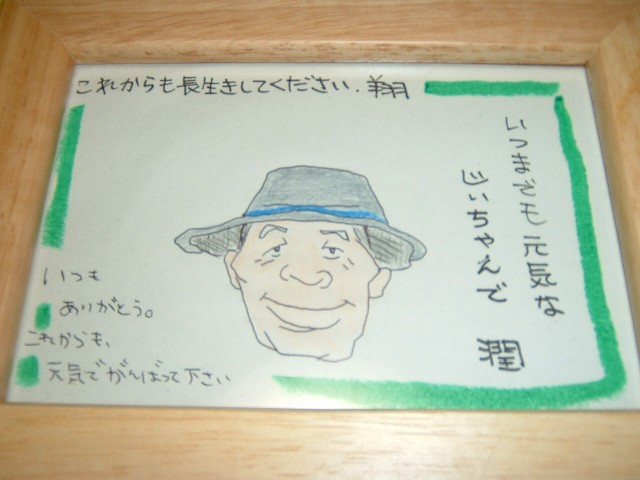 これからも長生きしてください。翔
いつまでも元気な
じいちゃんで 潤
いつも
ありがとう。
これからも、
元気でがんばって下さい